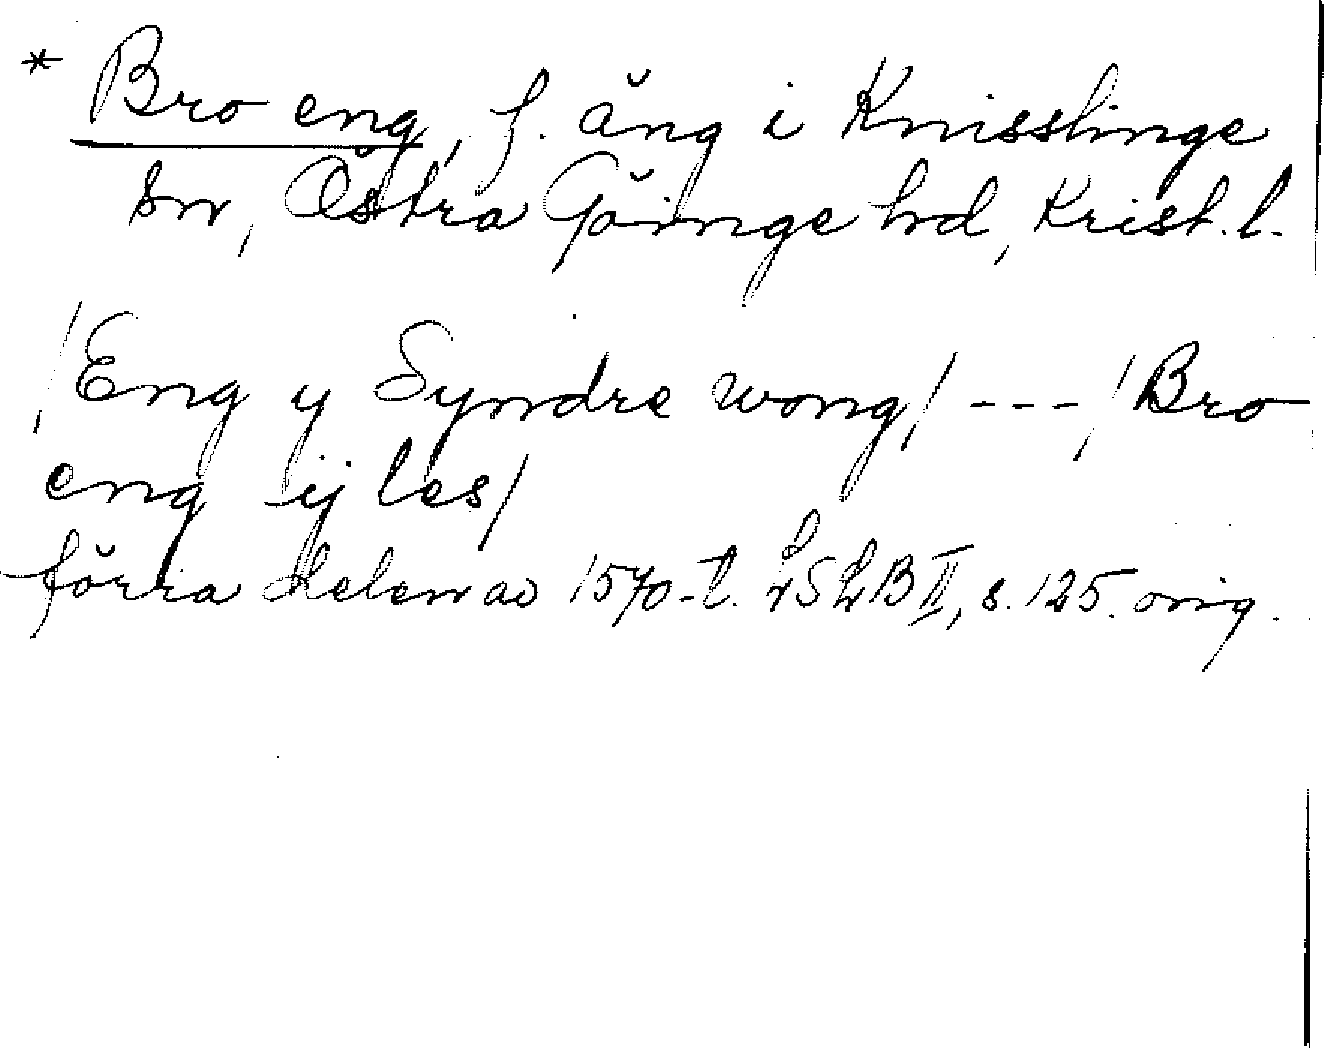 * Bro eng, f. äng i Knisslinge
sn, Östra Göinge hd, Krist. l.
/Eng y Syndre wong/ ---/Bro
eng ij les/
förra delen av 1570-t. LSLB II, s. 125. orig.